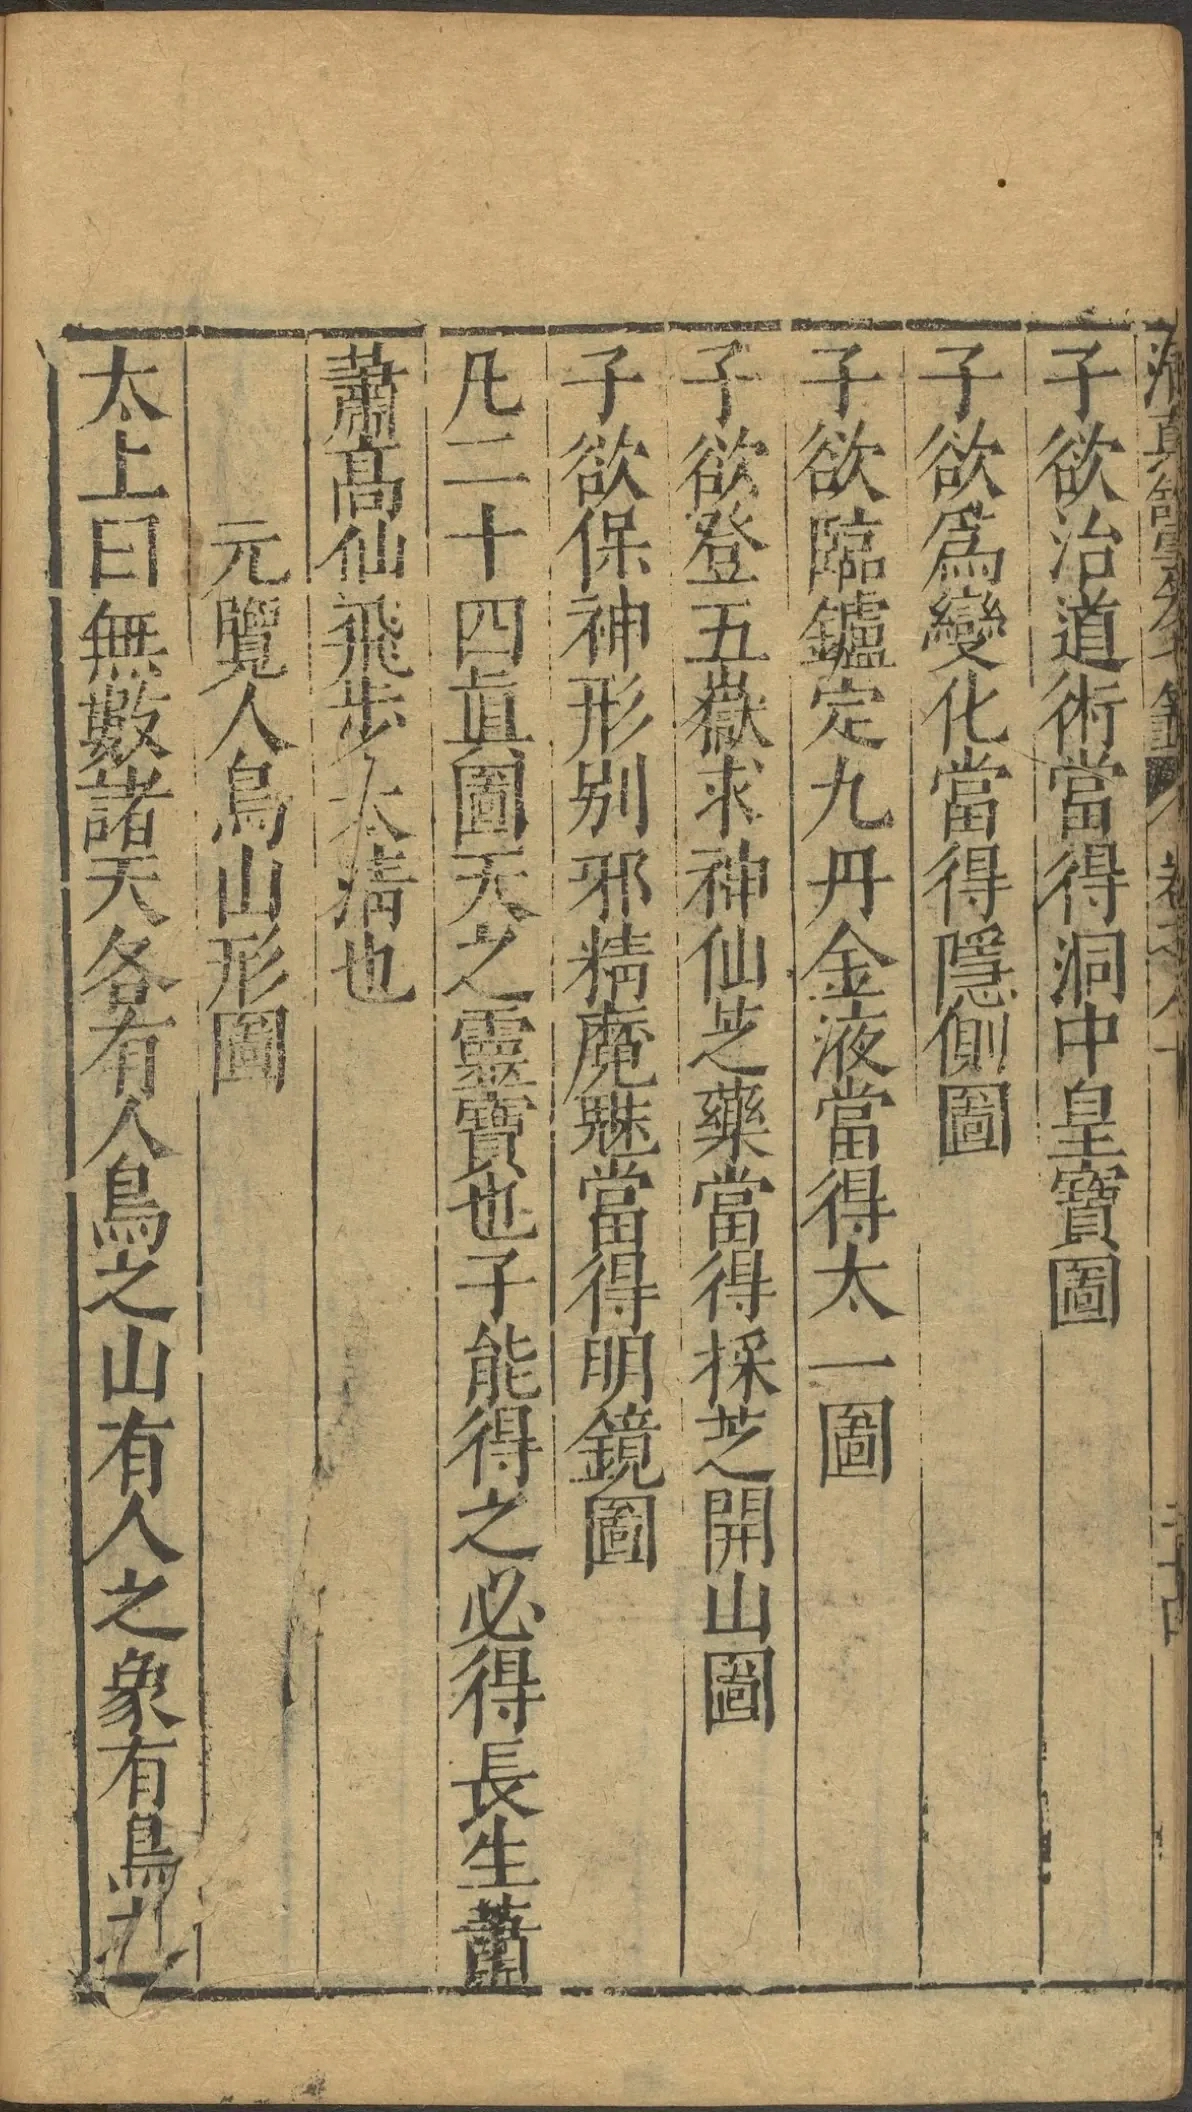 子欲治道術當得洞中皇寶圖
子欲爲變化當得隱側圖
子欲臨鑪定九丹金液當得太一圖
子欲登五嶽求神仙芝藥當得採芝開山圖
子欲保神形别邪精魔魅當得明鏡圖
凡二十四眞圖天之靈寶也子能得之必得長生蕭
蕭高仙飛步太清也
元覽人鳥山形圖
太上曰無數諸天各有人鳥之山有人之象有鳥